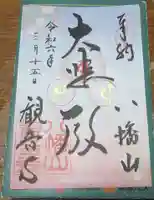 奉納
八幡山
大悲殿
観音寺
令和六年
三月十五日